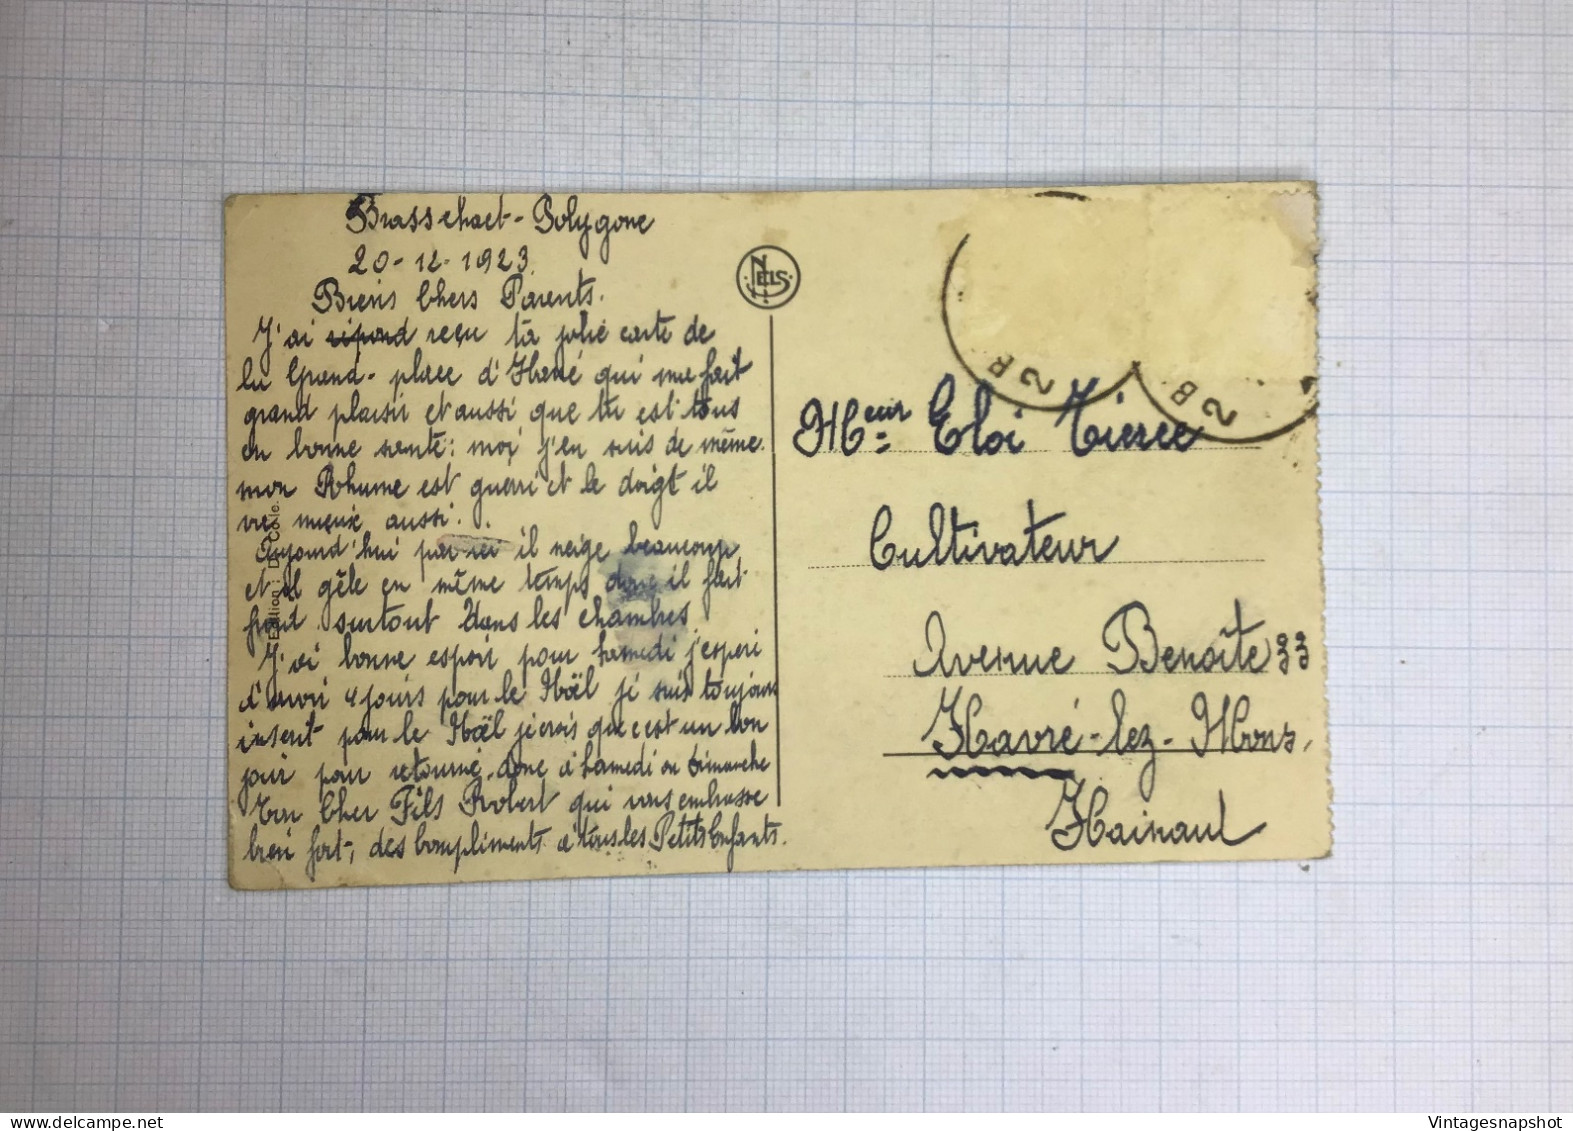 Brasschaet-Polygone
20-12-1923.
Biens Chers Parents.
J'ai répond reçu ta jolie carte de
la Grand-place d'Havré qui me fait
grand plaisir et aussi que tu est tous
en bonne santé; moi j'en suis de même.
mon Rhume est guerri et le doigt il
va mieux aussi.
Aujourd'hui par ici il neige beaucoup
et il gêle en même temps donc il fait
froid surtout dans les chambres
J'ai bonne espoir pour samedi j'esperé
d'avoir 4 jours pour le Noël je suis toujours
inscrit pour le Noël je crois que c'est un bon
jour pour retourné. donc à samedi ou dimanche
Ton Cher Fils Robert qui vous embrasse
bien fort, des Compliments à tous les Petits Enfants.
Edition: D. Cole.
NELS
2 B
2 B
Mr eur Eloi Tierce
Cultivateur
Avenue Benoîte 33
Havré-lez-Mons,
Hainaut
delcampe.net
Vintagesnapshot